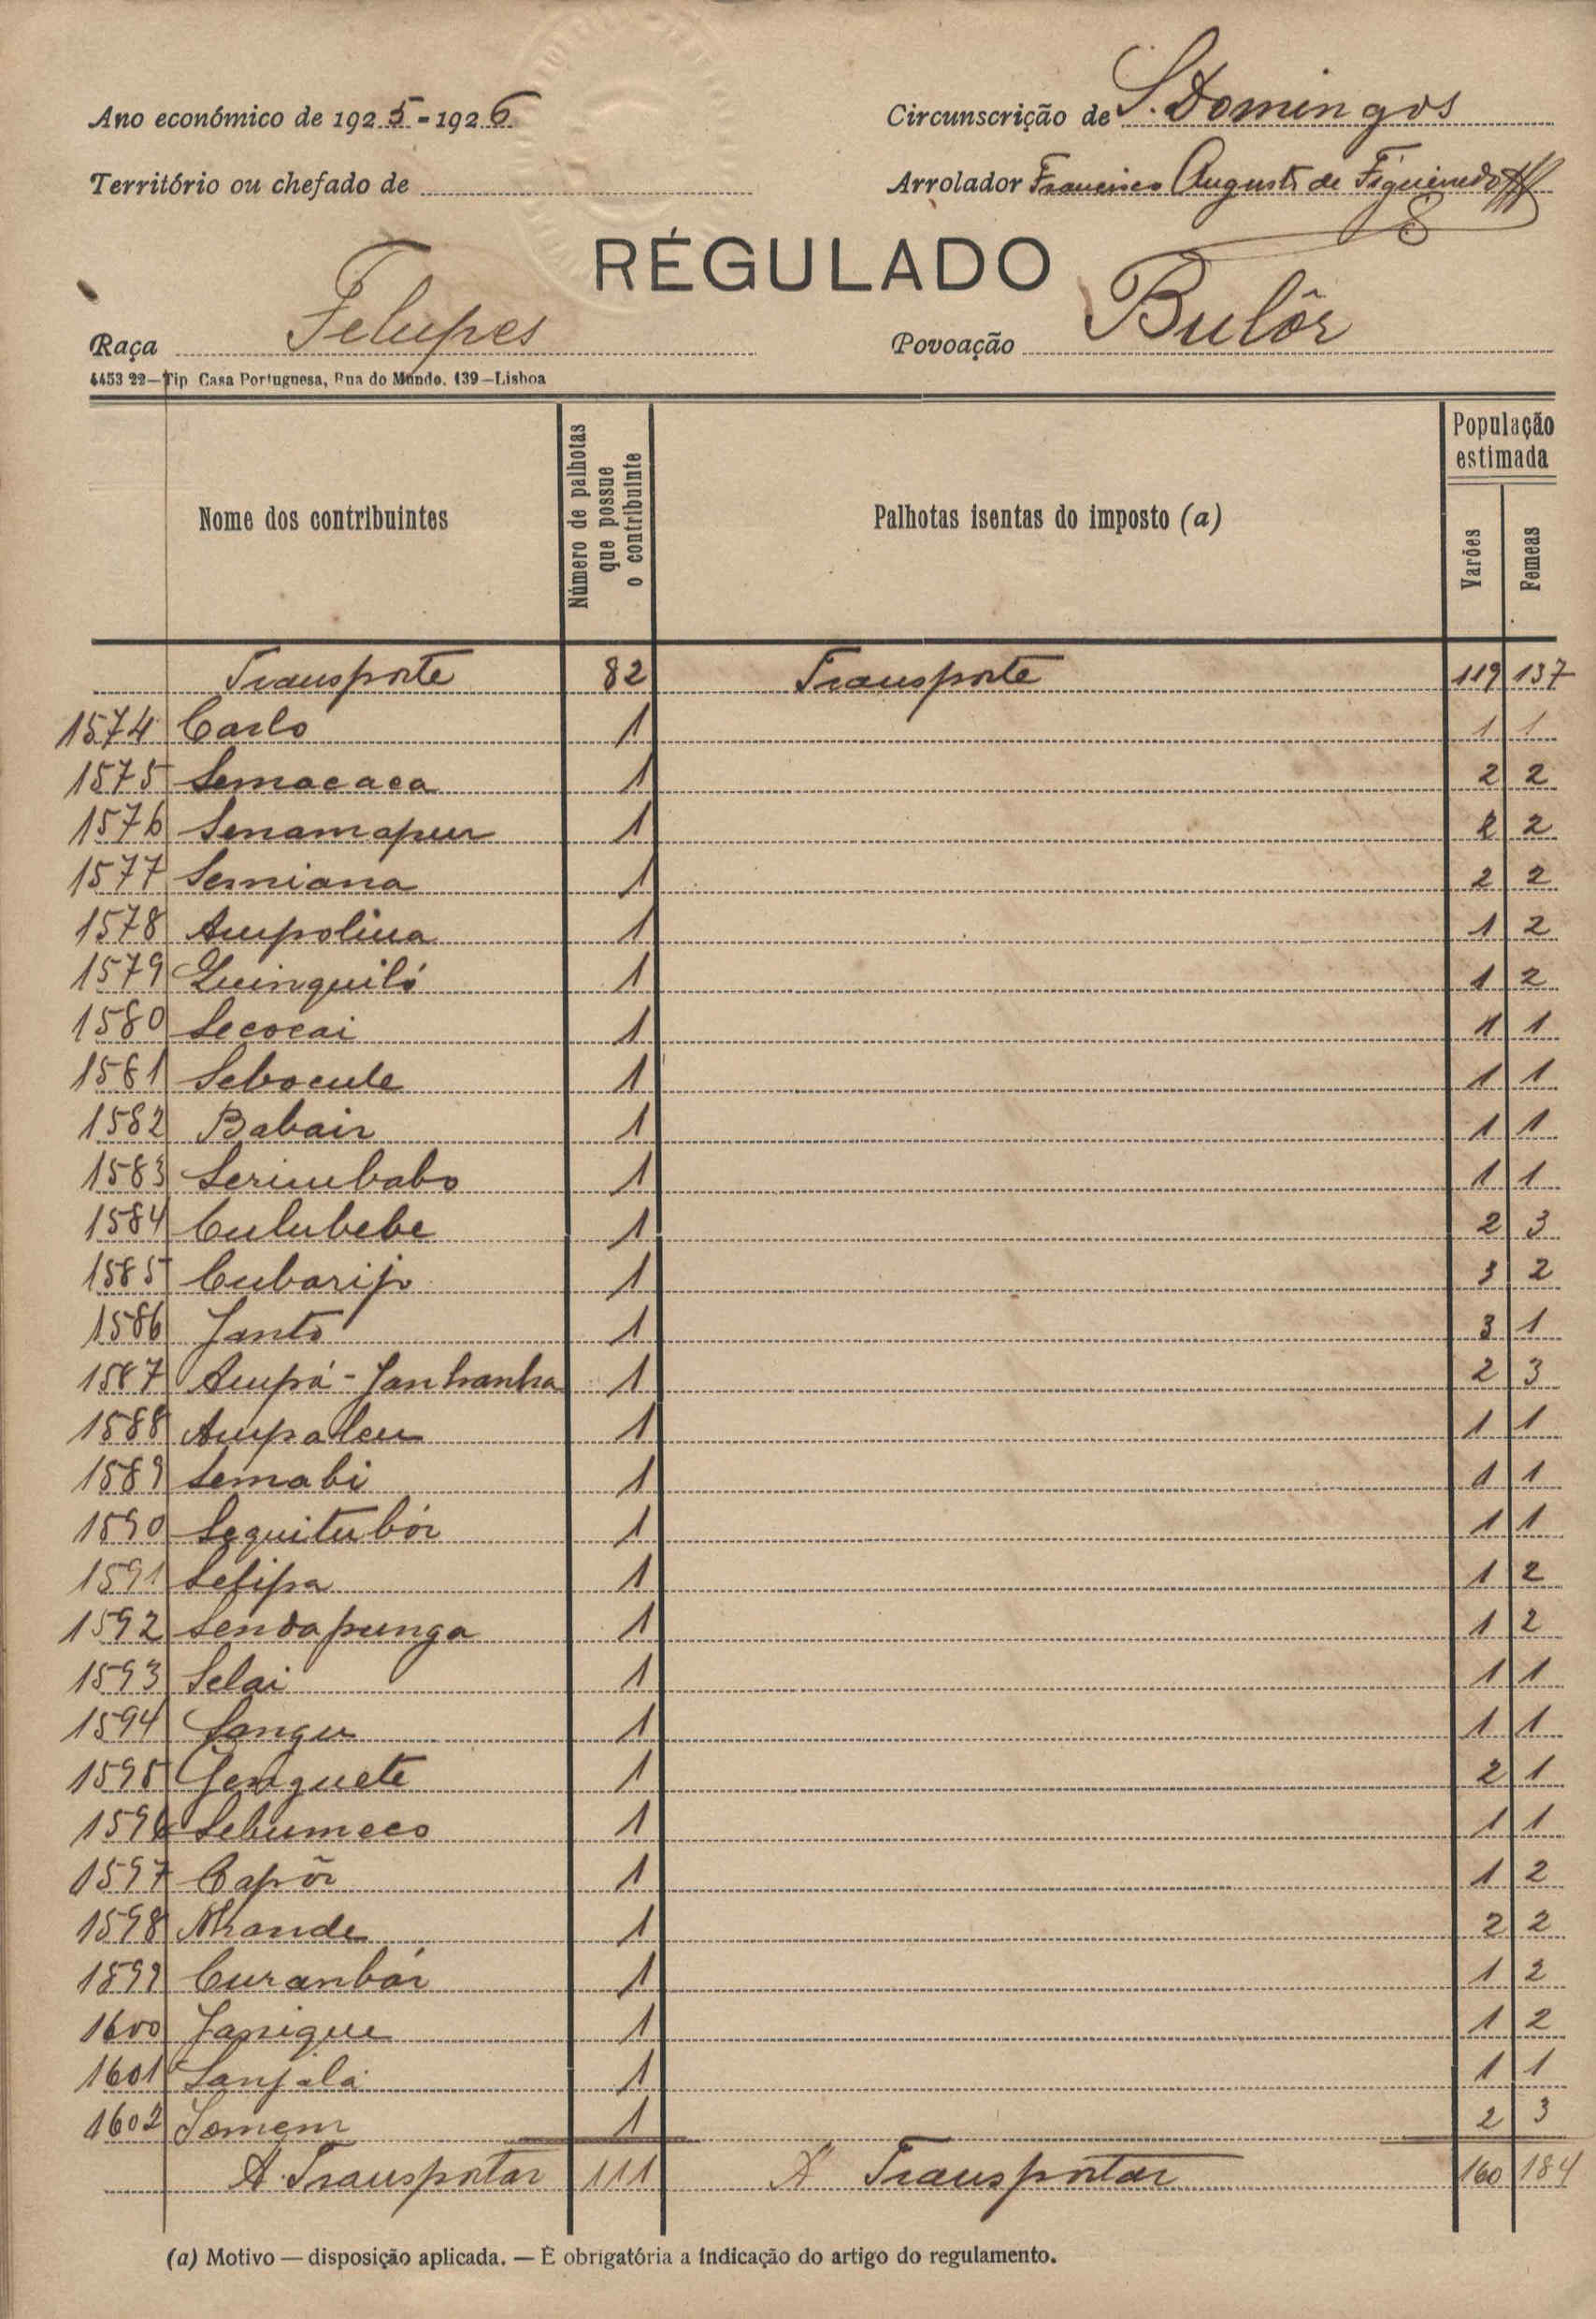 Ano económico de 1925-1926 Circunscrição de S. Domingos
Território ou chefado de Arrolador Francisco Augusto de Figueiredo
RÉGULADO
Raça Felupes Povoação Bulôr
4453 22—Tip Casa Portuguesa, Rua do Mundo, 139—Lisboa
Nome dos contribuintes Número de palhotas que possue o contribuinte Palhotas isentas do imposto (a) População estimada Varões Femeas
Transporte 82 Transporte 119 137
1574 Carlo 1 1 1
1575 Semacaca 1 2 2
1576 Senamapur 1 2 2
1577 Semiana 1 2 2
1578 Ampolina 1 1 2
1579 Quinquiló 1 1 2
1580 Secocai 1 1 1
1581 Sebocule 1 1 1
1582 Babair 1 1 1
1583 Serimbabo 1 1 1
1584 Culubebe 1 2 3
1585 Cubarip 1 3 2
1586 Janto 1 3 1
1587 Ampá-Janhanha 1 2 3
1588 Ampaleu 1 1 1
1589 Semabi 1 1 1
1590 Sequitubór 1 1 1
1591 Sefipa 1 1 2
1592 Sendapunga 1 1 2
1593 Selai 1 1 1
1594 Sangu 1 1 1
1595 Jenguete 1 2 1
1596 Sebumeco 1 1 1
1597 Capõr 1 1 2
1598 Nhande 1 2 2
1599 Curanbár 1 1 2
1600 Janique 1 1 2
1601 Sanjalá 1 1 1
1602 Jomem 1 2 3
A Transportar 111 A Transportar 160 184
(a) Motivo — disposição aplicada. — É obrigatória a indicação do artigo do regulamento.